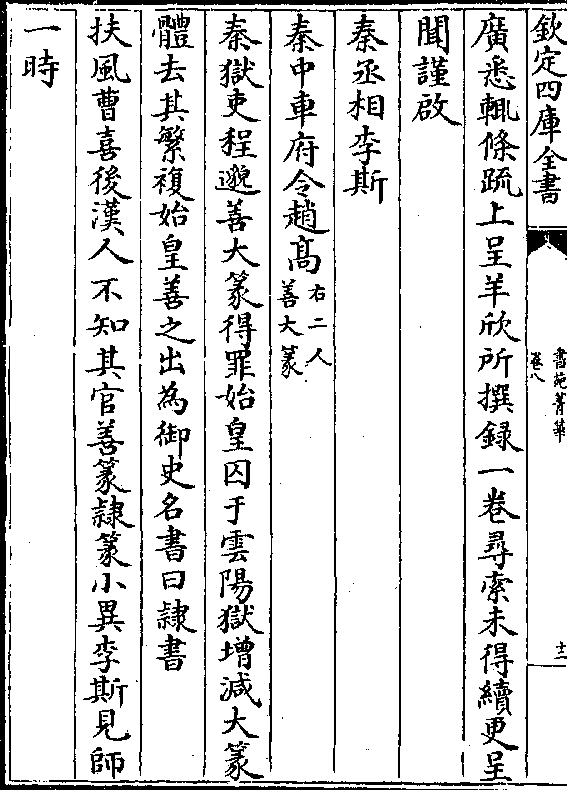 欽定四庫全書
書苑菁華
卷八
十二
廣悉輒條䟽上呈羊欣所撰録一卷尋索未得續更呈
聞謹啟
秦丞相李斯
秦中車府令趙髙
右二人
善大篆
秦獄吏程邈善大篆得罪始皇囚于雲陽獄增減大篆
體去其繁複始皇善之出為御史名書曰隷書
扶風曹喜後漢人不知其官善篆隷篆小異李斯見師
一時